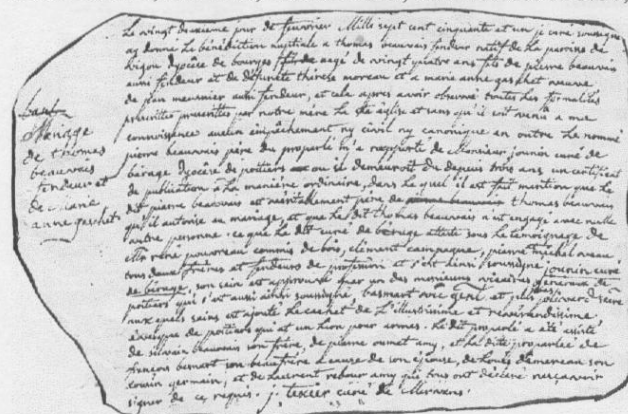 Le vingt deuxieme jour de fevrier Mille sept cent cinquante et un je curé soussigné
ay donné la benediction nuptiale a thomas beauvais fondeur natif de la paroisse de
diocèse de bourges fils aagé de vingt quatre ans fils de pierre beauvais
aussi fondeur et de defunte therese moreau et a marie anne gaschet veuve
de jean meusnier aussi fondeur, et cela apres avoir observé toutes les formalités
prescrittes par notre mère la ste église et sans qu'il soit venu a ma
connoissance aucun empechement ny civil ny canonique en outre le nommé
pierre beauvais père du proparlé m'a rapporté de Monsieur jounin curé de
diocèse de poitiers ou il demeuroit du depuis trois ans un certificat
de publication a la manière ordinaire, dans le quel il est fait mention que le
dit pierre beauvais est veritablement père de thomas beauvais
qu'il autorise au mariage, et que le dit thomas beauvais n'a engagé avec nulle
autre personne. ce que le dit curé de atteste sous le temoignage de
commis de bois, clement campagne, pierre michel
tous deux frères et fondeurs de profession et s'est ainsi soussigné, jounin curé
de son sein est approuvé par un des messieurs vicaires generaux de
poitiers qui s'est aussi ainsi soussigné, vic. genl. et plus
aux quels seins est ajouté le cachet de l'illustrissime et reverendissime
evesque de poitiers qui at un lion pour armes. le dit proparlé a été assisté
de silvain beauvais son frère, de pierre amy, et la dite proparlée de
françois bernart son beaufrère a cause de son epouse, de louis son
cousin germain, et de laurent amy qui tous ont declaré ne sçavoir
signer de ce requis. j. texier curé de
mariage
de thomas
beauvais
fondeur et
de marie
anne gaschet